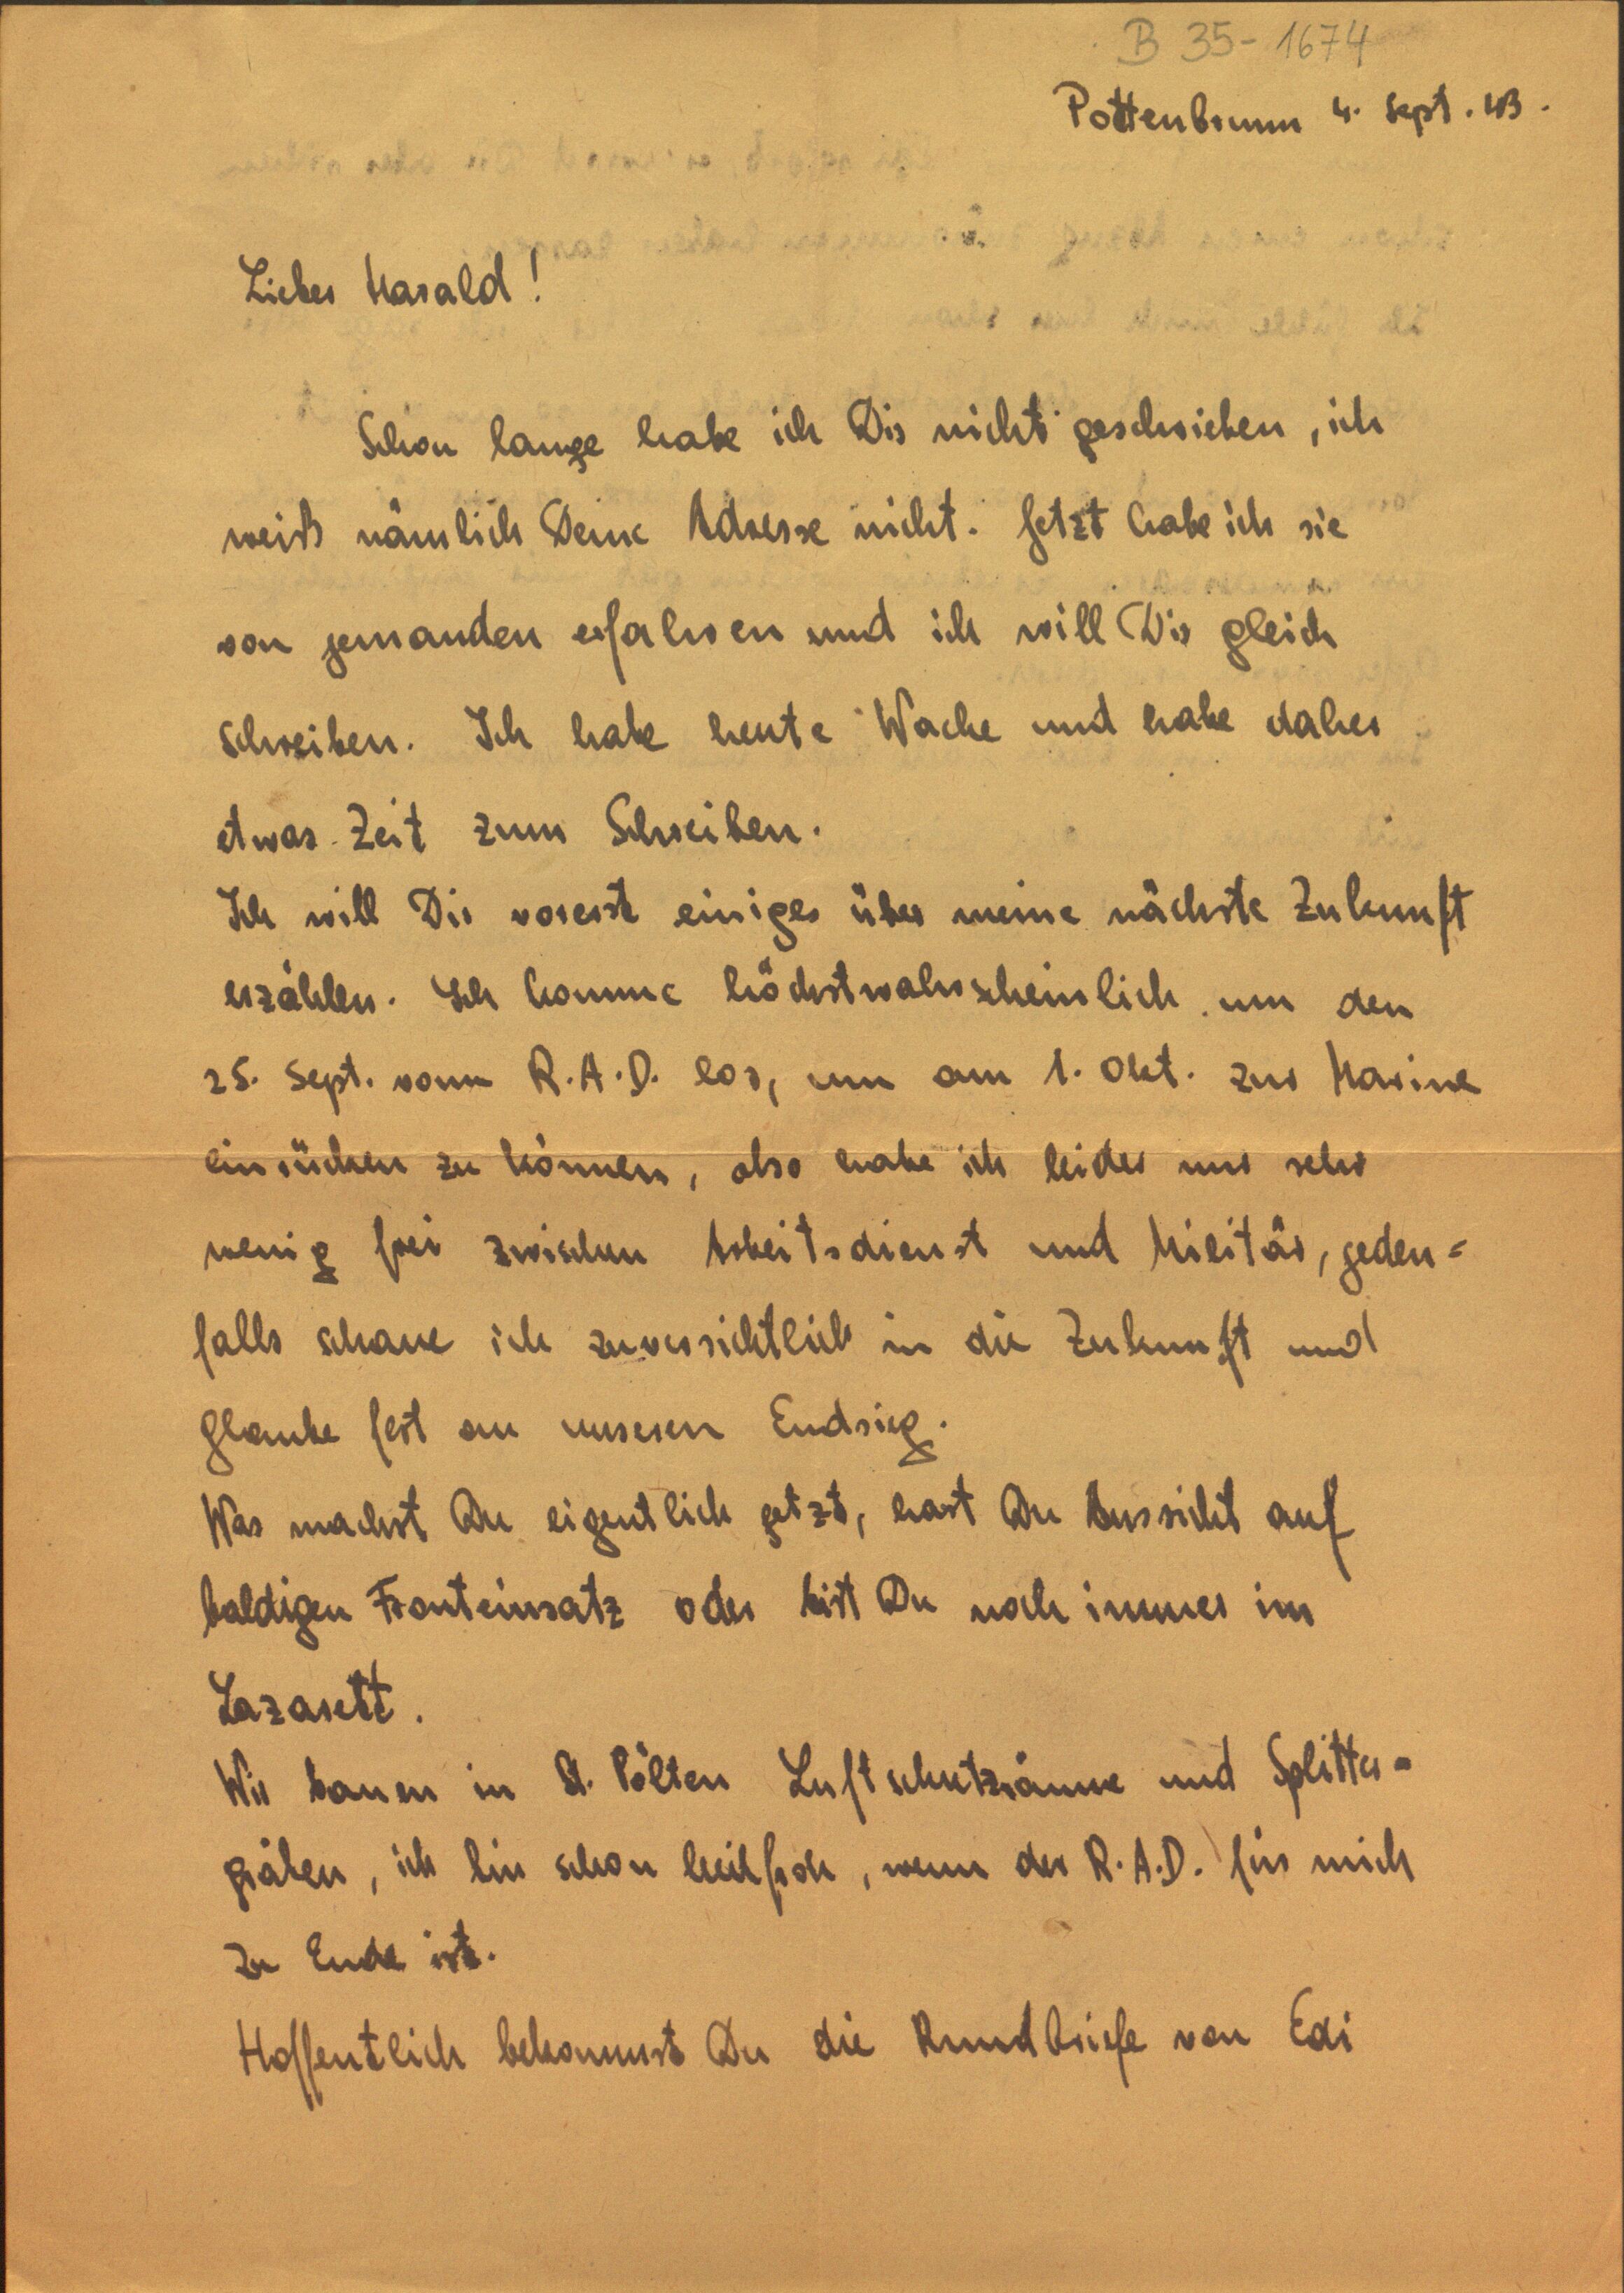 B 35-1674
Pottenbrunn 4. Sept. 43.
Lieber Harald!
Schon lange habe ich Dir nicht geschrieben, ich
weiß nämlich Deine Adresse nicht. Jetzt habe ich sie
von jemanden erfahren und ich will Dir gleich
schreiben. Ich habe heute Wache und habe daher
etwas Zeit zum Schreiben.
Ich will Dir vorerst einiges über meine nächste Zukunft
erzählen. Ich komme höchstwahrscheinlich um den
25. Sept. vom R.A.D. los, um am 1. Okt. zur Marine
einrücken zu können, also habe ich leider nur sehr
wenig frei zwischen Arbeitsdienst und Militär, jeden=
falls schaue ich zuversichtlich in die Zukunft und
glaube fest an unseren Endsieg.
Was machst Du eigentlich jetzt, hast Du Aussicht auf
baldigen Fronteinsatz oder bist Du noch immer im
Lazarett.
Wir bauen in St. Pölten Luftschutzräume und Splitter=
gräben, ich bin schon heilfroh, wenn der R.A.D. für mich
zu Ende ist.
Hoffentlich bekommst Du die Rundbriefe von Edi